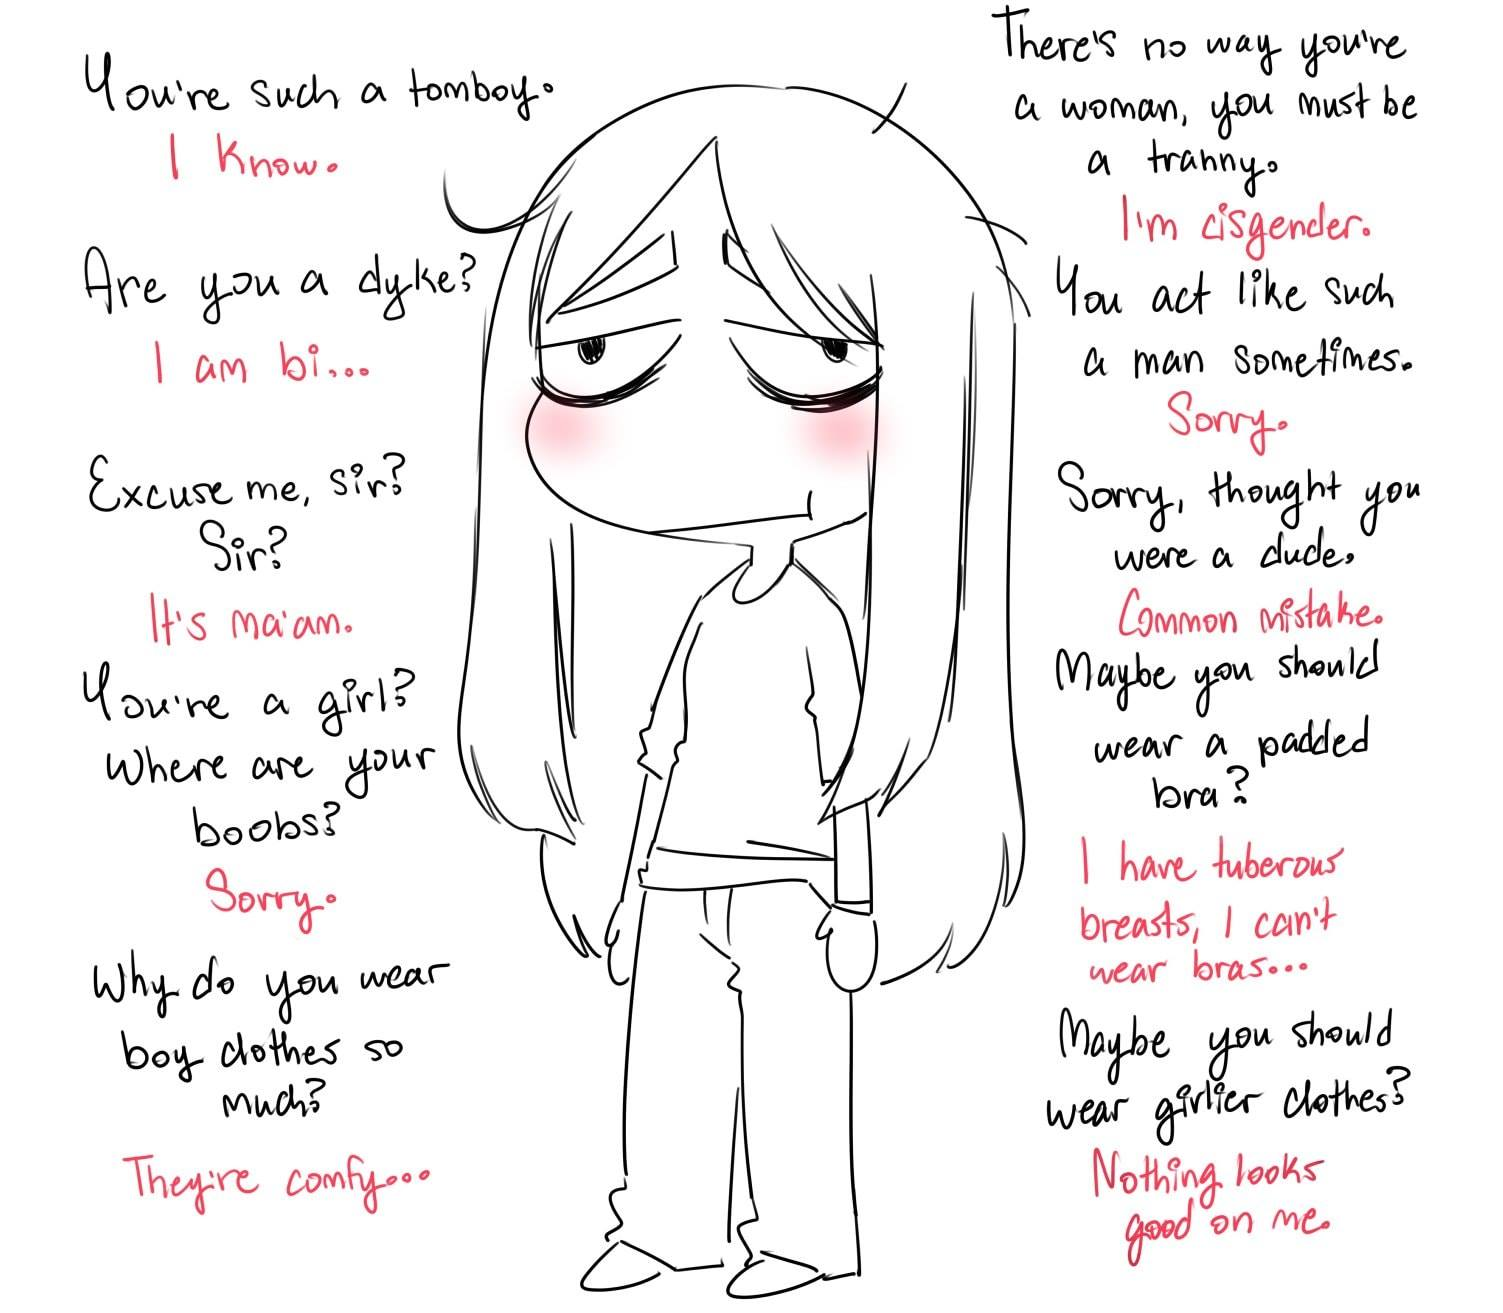 You're such a tomboy.
I know.
Are you a dyke?
I am bi...
Excuse me, sir?
Sir?
It's ma'am.
You're a girl?
Where are your
boobs?
Sorry.
Why do you wear
boy clothes so
much?
They're comfy...
There's no way you're
a woman, you must be
a tranny.
I'm cisgender.
You act like such
a man sometimes.
Sorry.
Sorry, thought you
were a dude.
Common mistake.
Maybe you should
wear a padded
bra?
I have tuberous
breasts, I can't
wear bras...
Maybe you should
wear girlier clothes?
Nothing looks
good on me.